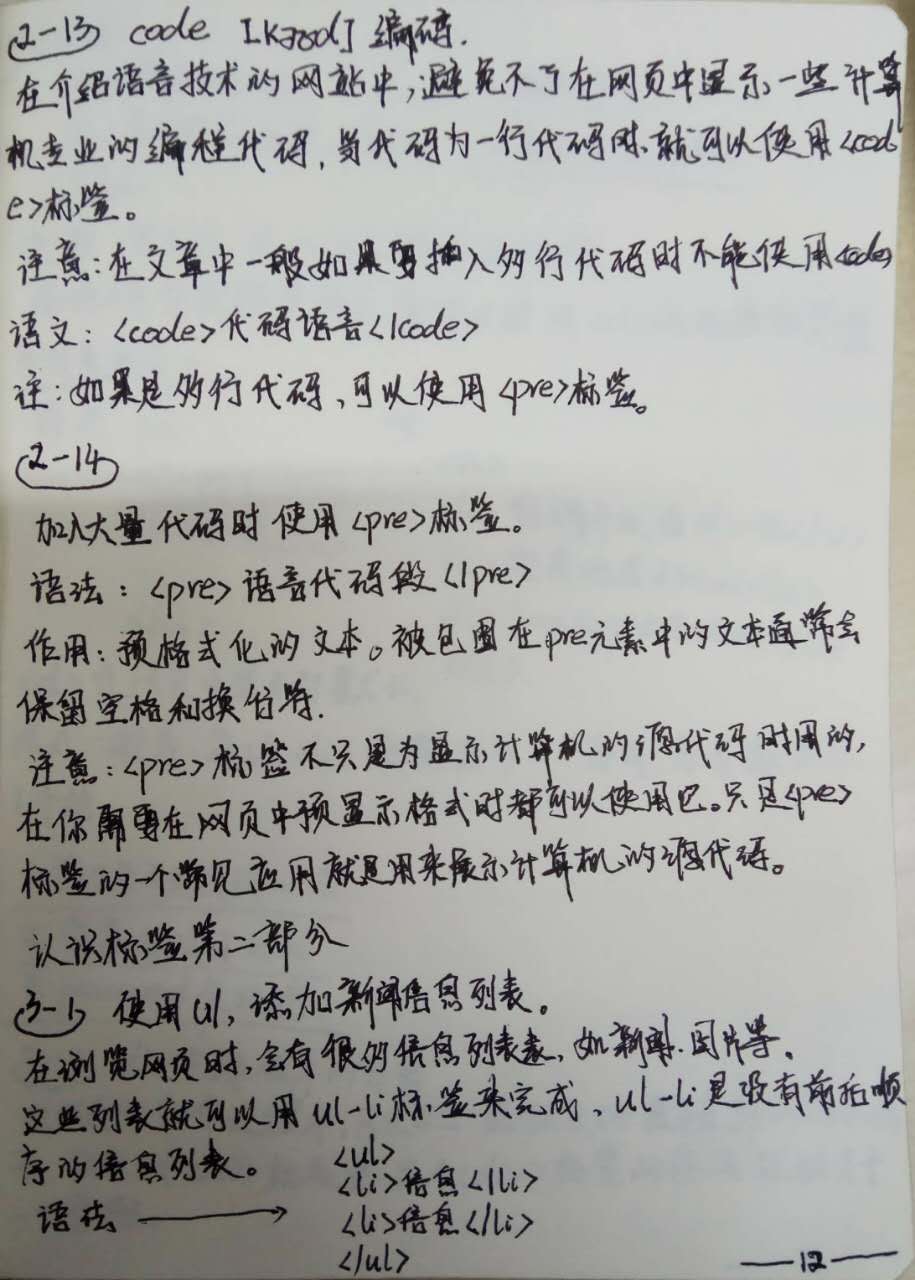 2-13 code [kəod] 编码.
在介绍语言技术的网站中,避免不了在网页中显示一些计算
机专业的编程代码,当代码为一行代码时,就可以使用<cod
e>标签。
注意:在文章中一般如果要插入多行代码时不能使用<code>
语文:<code>代码语言</code>
注:如果是多行代码,可以使用<pre>标签。
2-14
加入大量代码时使用<pre>标签。
语法:<pre>语言代码段</pre>
作用:预格式化的文本。被包围在pre元素中的文本通常会
保留空格和换行符.
注意:<pre>标签不只是为显示计算机的源代码时用的,
在你需要在网页中预显示格式时都可以使用它。只是<pre>
标签的一个常见应用就是用来展示计算机的源代码。
认识标签第二部分
3-1 使用ul,添加新闻信息列表。
在浏览网页时,会有很多信息列表表,如新闻.图片等.
这些列表就可以用ul-li标签来完成、ul-li是没有前后顺
序的信息列表。
语法 →
<ul>
<li>信息</li>
<li>信息</li>
</ul>
—12—